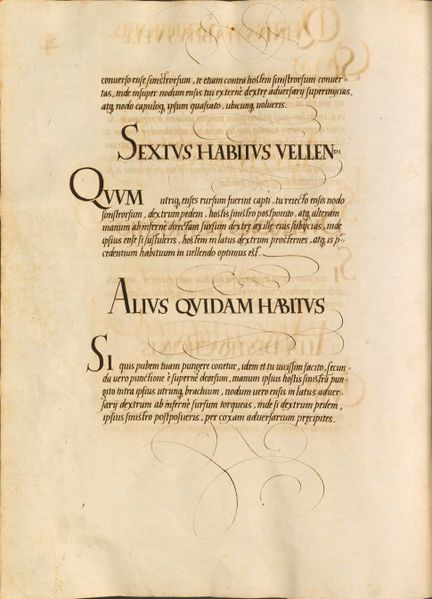 conuerso ense sinistrorsum, te etiam contra hostem sinistrorsum conuer-
tas, inde insuper nodum ensis tui externe dextrę aduersarij supermicias,
atq, nodo capuloq, ipsum quassato, ubicunq, uolueris.
SEXTVS HABITVS VELLENDI
QVVM utriq, enses rursum fuerint capti, tu reiecto ensis nodo
sinistrorsum, dextrum pedem, hostis sinistro postponito, atq, alteram
manum ab inferne directam sursum dextrę axillę eius subijcias, inde
ipsius ense si sustuleris, hostem in latus dextrum prosternes, atq, is p̄-
cedentium habituum in uellendo optimus est.
ALIVS QVIDAM HABITVS
SI quis pubem tuam pungere conetur, idem et tu uicissim facito, secun-
da uero punctione è supernè deorsum, manum ipsius hostis sinistrā pun-
gito intra ipsius utrunq, brachium, nodum uero ensis in latus aduer-
sarij dextrum ab inferne sursum torqueas, inde si dextrum pedem,
ipsius sinistro postposueris, per coxam aduersarium pręcipites.